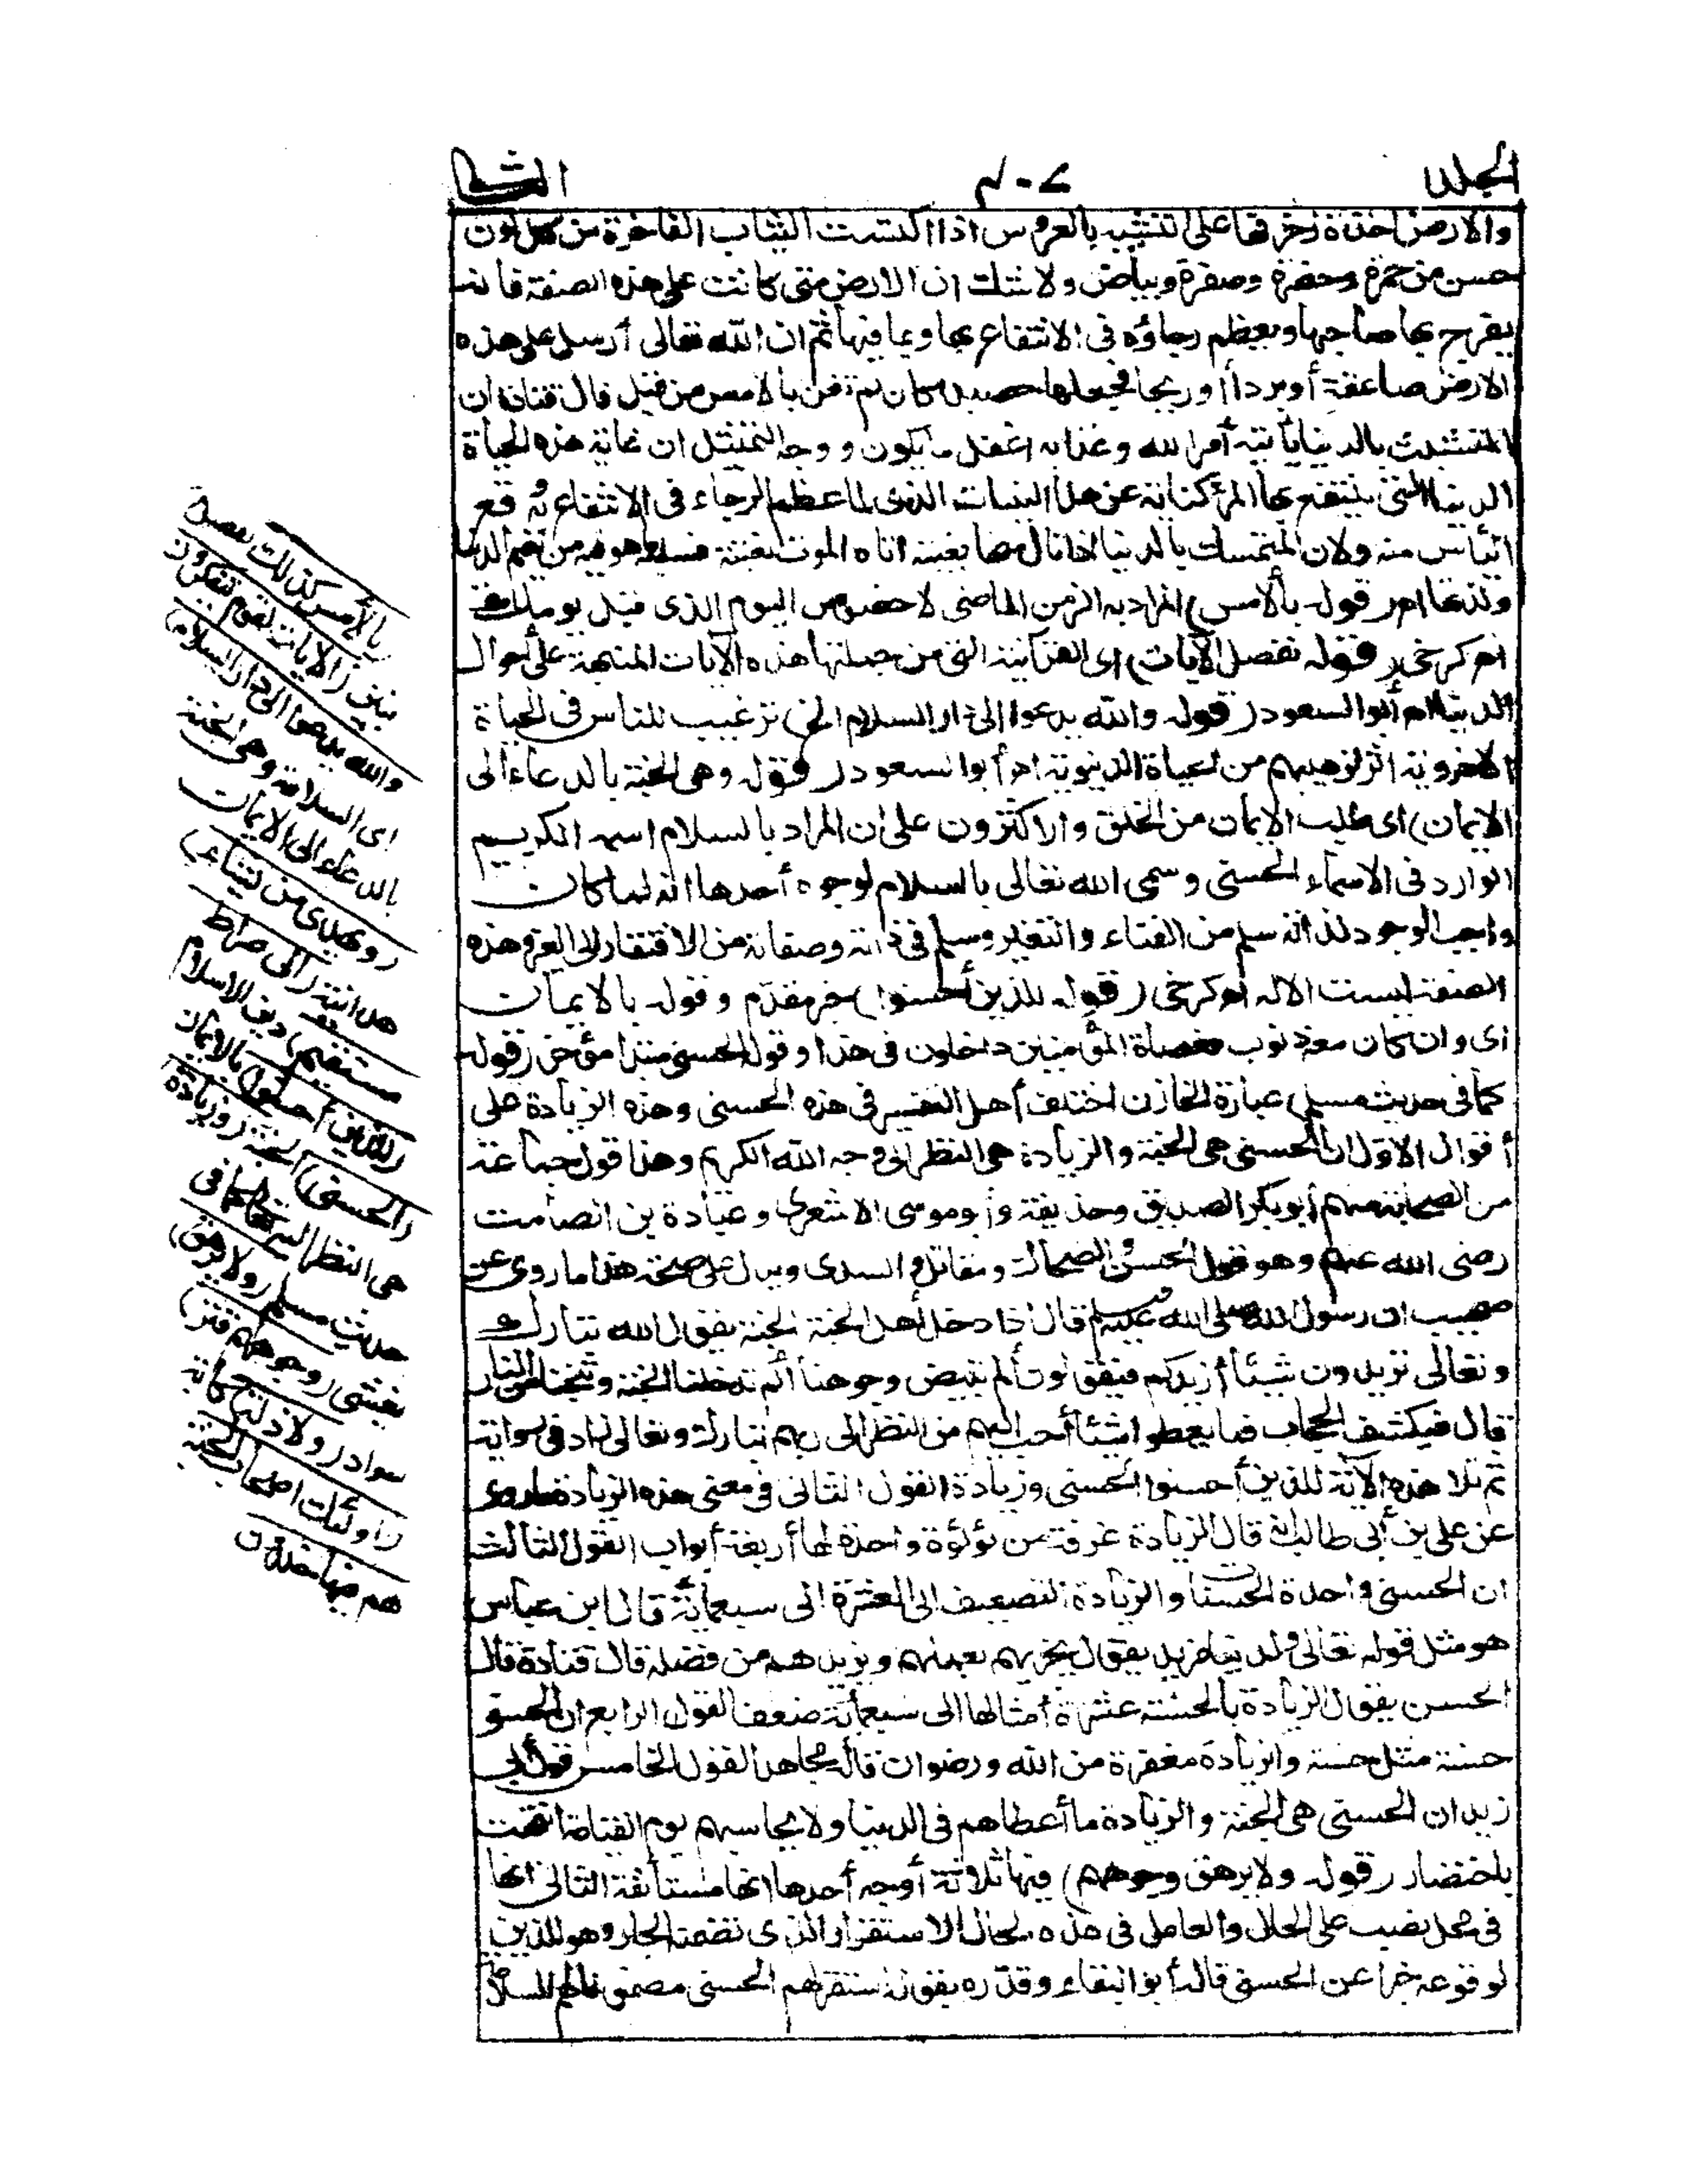 الجلد ٤٠٧ الثا
والارض اخذة زخرفها على التشبيه بالعروس اذا اكتست الثياب الفاخرة من كل لون
حسن من حمرة وخضرة وصفرة وبياض ولا شك ان الارض متى كانت على هذه الصفة فانه
يفرح بها صاحبها ويعظم رجاؤه فى الانتفاع بها وبما فيها ثم ان الله تعالى أرسل على هذه
الارض صاعقة أو بردا أو ريحا فجعلها حصيدا كان لم تغن بالامس من قبل قال قتادة ان
المتشبث بالدنيا يأتيه أمر الله وعذابه اغفل ما يكون ووجه التمثيل ان غاية هذه الحياة
الدنيا التى ينتفع بها المرء كناية عن هذا النبات الذى لما عظم الرجاء فى الانتفاع به وقع
اليأس منه ولان المتمسك بالدنيا اذا نال منها بغيته اتاه الموت بغتة فسلبه ما هو فيه من نعيم الدنيا
ولذتها اهـ ر قوله بالأمس) المراد به الزمن الماضى لا خصوص اليوم الذى قبل يومك
اهـ كرخى ر قوله نفصل الآيات) اى القرآنية التى من جملتها هذه الآيات المنبهة على أحوال
الدنيا اهـ أبو السعود ر قوله والله يدعوا الى دار السلام الخ) ترغيب للناس فى الحياة
الاخروية اثر ترهيبهم من الحياة الدنيوية اهـ أبو السعود ر قوله وهى الجنة بالدعاء الى
الايمان) اى طلب الايمان من الخلق والاكثرون على ان المراد بالسلام اسمه الكريم
الوارد فى الاسماء الحسنى وسمى الله تعالى بالسلام لوجوه أحدها انه لما كان
واجب الوجود لذاته سلم من الفناء والتغير وسلم فى ذاته وصفاته من الافتقار الى الغير وهذه
الصفة ليست الا له اهـ كرخى ر قوله للذين أحسنوا) خبر مقدّم وقوله بالايمان
اى وان كان معه ذنوب فعصاة المؤمنين داخلون فى هذا وقوله الحسنى مبتدا مؤخر ر قوله
كما فى حديث مسلم) عبارة الخازن اختلف أهل التفسير فى هذه الحسنى وهذه الزيادة على
أقوال الاوّل ان الحسنى هى الجنة والزيادة هى النظر الى وجه الله الكريم وهذا قول جماعة
من الصحابة منهم أبو بكر الصديق وحذيفة وأبو موسى الاشعرى وعبادة بن الصامت
رضى الله عنهم وهو قول الحسن والضحاك ومقاتل والسدى ويدل على صحة هذا ما روى عن
صهيب ان رسول الله صلى الله عليه وسلم قال اذا دخل أهل الجنة الجنة يقول الله تبارك
وتعالى تريدون شيئا أزيدكم فيقولون ألم تبيض وجوهنا ألم تدخلنا الجنة وتنجنا من النار
قال فيكشف الحجاب فما يعطوا شيئا أحب اليهم من النظر الى ربهم تبارك وتعالى زاد فى رواية
ثم تلا هذه الآية للذين أحسنوا الحسنى وزيادة القول الثانى فى معنى هذه الزيادة ما روى
عن على بن أبى طالب انه قال الزيادة غرفة من لؤلؤة واحدة لها أربعة أبواب القول الثالث
ان الحسنى واحدة الحسنات والزيادة التضعيف الى العشرة الى سبعمائة قال ابن عباس
هو مثل قوله تعالى ولدينا مزيد يقول يجزيهم بعملهم ويزيدهم من فضله قال قتادة قال
الحسن يقول الزيادة بالحسنة عشرة أمثالها الى سبعمائة ضعف القول الرابع ان الحسنى
حسنة مثل حسنة والزيادة مغفرة من الله ورضوان قاله مجاهد القول الخامس قول أبى
زيد ان الحسنى هى الجنة والزيادة ما أعطاهم فى الدنيا ولا يحاسبهم يوم القيامة انتهت
باختصار ر قوله ولا يرهق وجوههم) فيها ثلاثة أوجه أحدها انها مستأنفة الثانى انها
فى محل نصب على الحال والعامل فى هذه الحال الاستقرار الذى تضمنه الجار وهو للذين
لوقوعه خبرا عن الحسنى قاله أبو البقاء وقدّره بقوله استقر لهم الحسنى مضمونا لهم السلامة
بالأمس كذلك نفصل)
نبين ر الآيات لقوم يتفكرون
والله يدعوا الى دار السلام)
اى السلامة وهى الجنة
بالدعاء الى الايمان
ر ويهدى من يشاء)
هدايته ر الى صراط
مستقيم) دين الاسلام
ر للذين أحسنوا) بالايمان
ر الحسنى) الجنة ر وزيادة)
هى النظر اليه تعالى كما فى
حديث مسلم ر ولا يرهق)
يغشى ر وجوههم قتر)
سواد ر ولا ذلة) كآبة
ر اولئك اصحاب الجنة
هم فيها خالدون